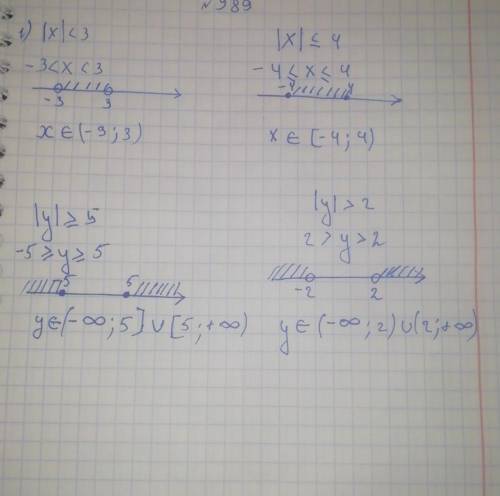 №989
1) |x|<3
-3<x<3
-3 3
x∈(-3;3)
|x|≤4
-4≤x≤4
-4 4
x∈[-4;4)
|y|≥5
-5≥y≥5
5 5
y∈(-∞;5]∪[5;+∞)
|y|>2
2>y>2
-2 2
y∈(-∞;2)∪(2;+∞)